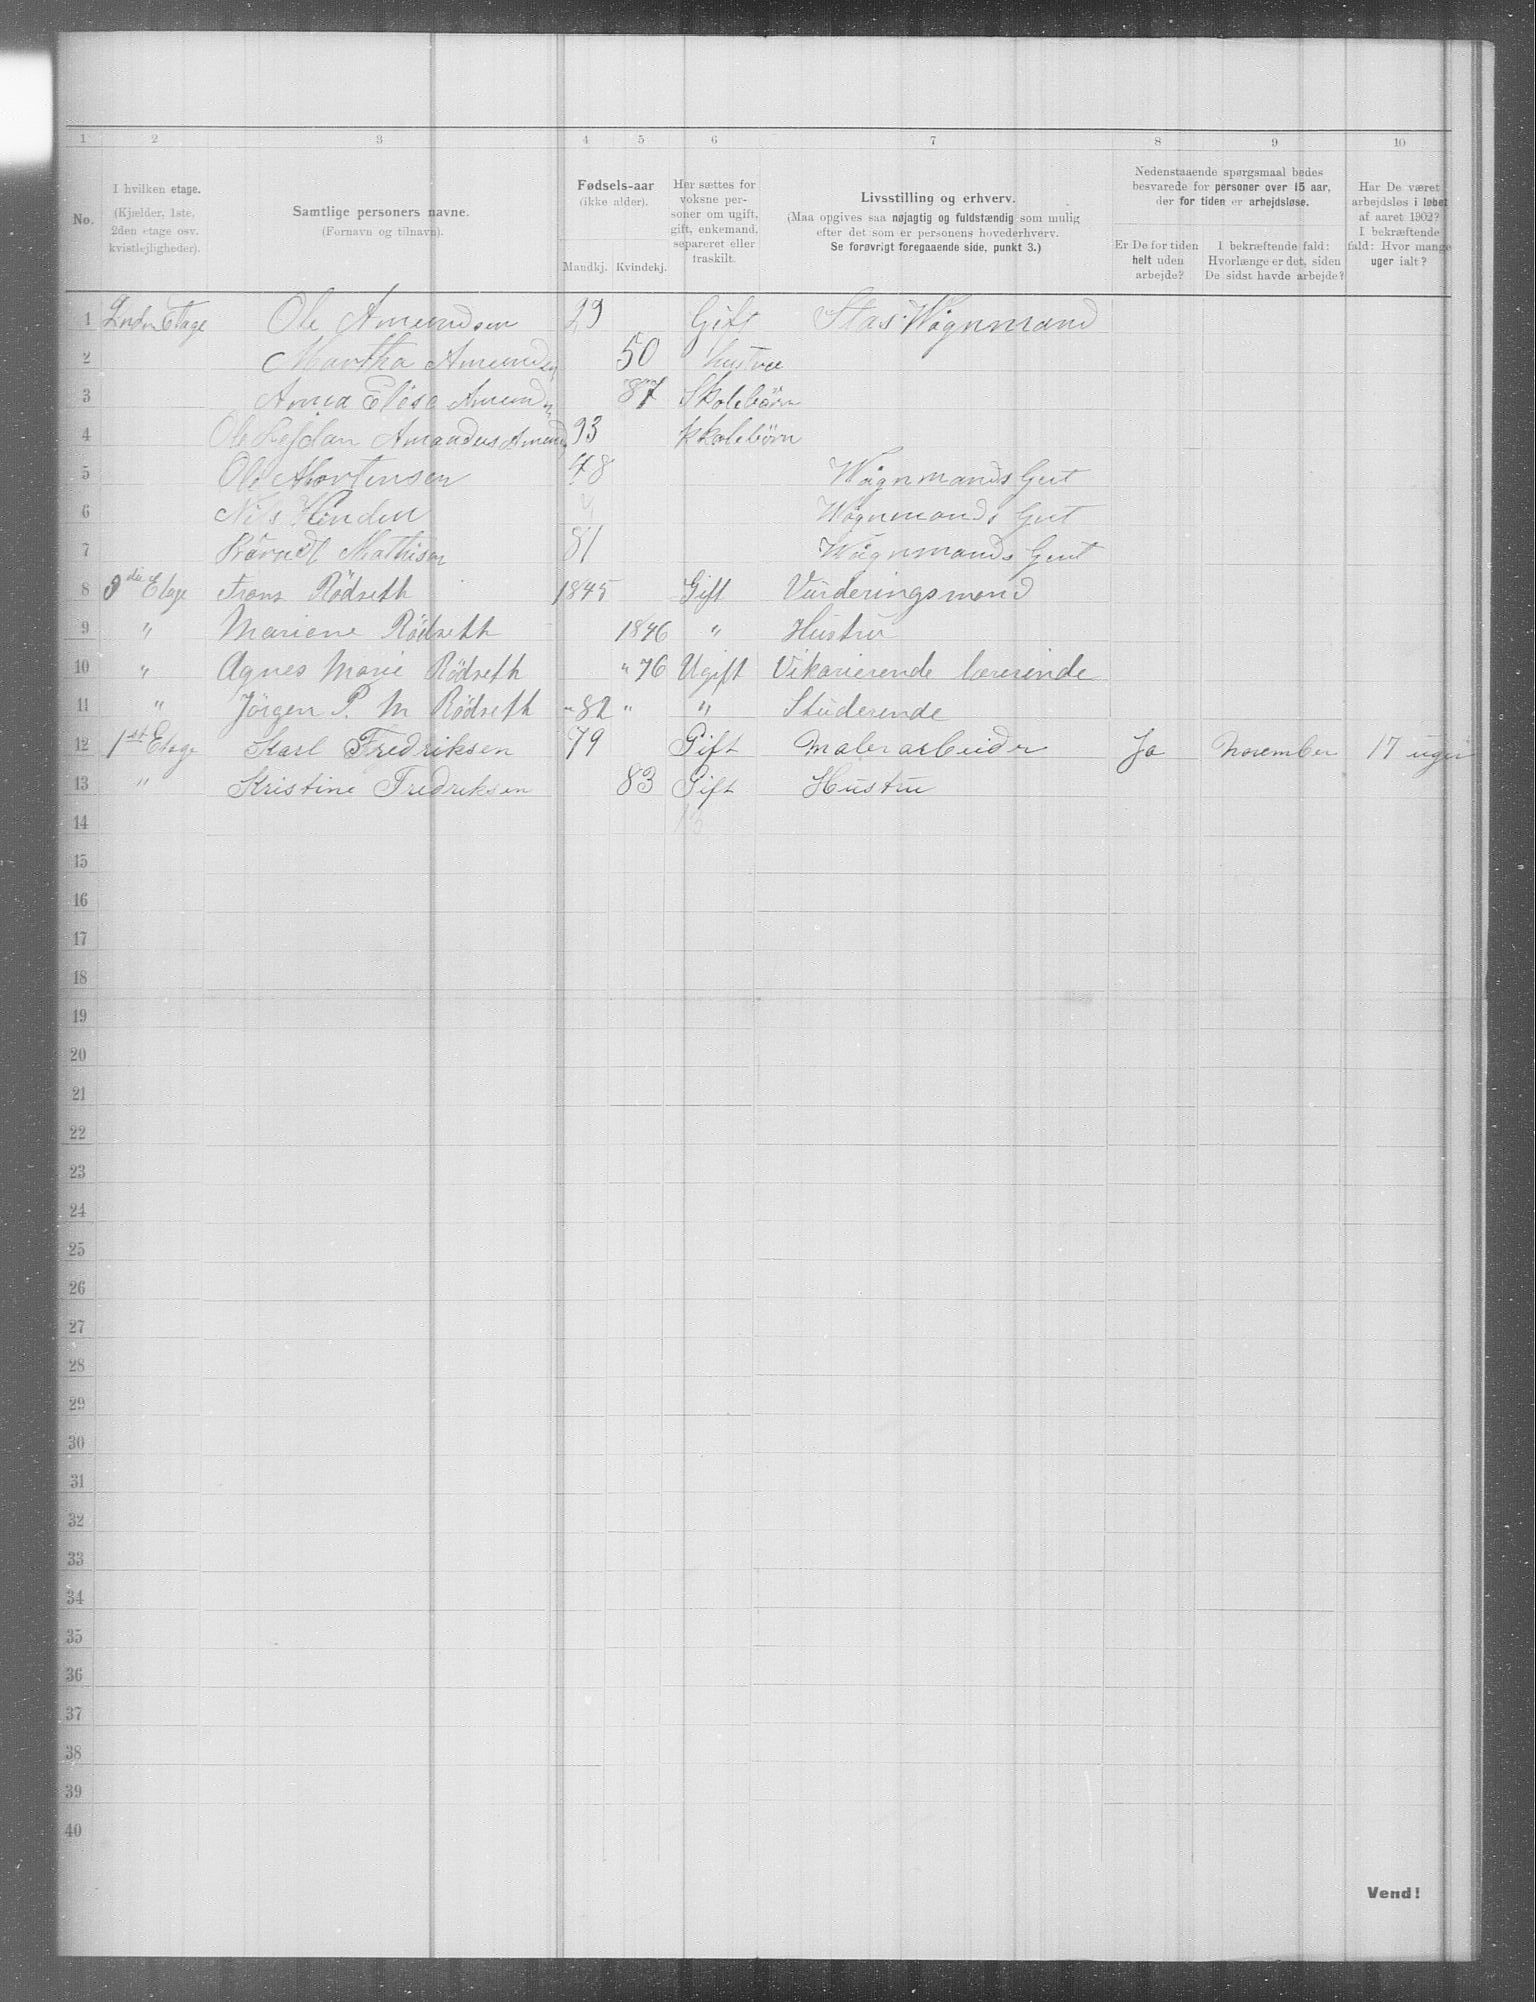 1 2 3 4 5 6 7 8 9 10
No.
I hvilken etage.
(Kjælder, 1ste,
2den etage osv.
kvistlejligheder).
Samtlige personers navne.
(Fornavn og tilnavn).
Fødsels-aar
(ikke alder).
Mandkj. Kvindekj.
Her sættes for
voksne per-
soner om ugift,
gift, enkemand,
separeret eller
fraskilt.
Livsstilling og erhverv.
(Maa opgives saa nøjagtig og fuldstændig som mulig
efter det som er personens hovederhverv.
Se forøvrigt foregaaende side, punkt 3.)
Nedenstaaende spørgsmaal bedes
besvarede for personer over 15 aar,
der for tiden er arbejdsløse.
Er De for tiden
helt uden
arbejde?
I bekræftende fald:
Hvorlænge er det, siden
De sidst havde arbejde?
Har De været
arbejdsløs i løbet
af aaret 1902?
I bekræftende
fald: Hvor mange
uger ialt?
1 2nden Etage Ole Amundsen 29 Gift Wognmand
2 Martha Amundsen 50 hustru
3 Anna Elise Amundsen 87 Skolebörn
4 Ole Amandus 93 kkolebörn
5 Ole Mortensen 48 Wognmands Gut
6 Nils Wognmands Gut
7 Mathisen 81 Wognmands Gut
8 3die Etage Frans Rödseth 1845 Gift Vurderingsmand
9 " Mariene Rödseth 1846 " Hustru
10 " Agnes Marie Rödseth " 76 Ugift Vikarierende lærerinde
11 " Jörgen P. M Rödseth " 82 " " Studerende
12 1st Etage Karl Fredriksen 79 Gift Malerarbeider Ja November 17 uger
13 " Kristine Fredriksen 83 Gift Hustru
14 13
15
16
17
18
19
20
21
22
23
24
25
26
27
28
29
30
31
32
33
34
35
36
37
38
39
40
Vend!